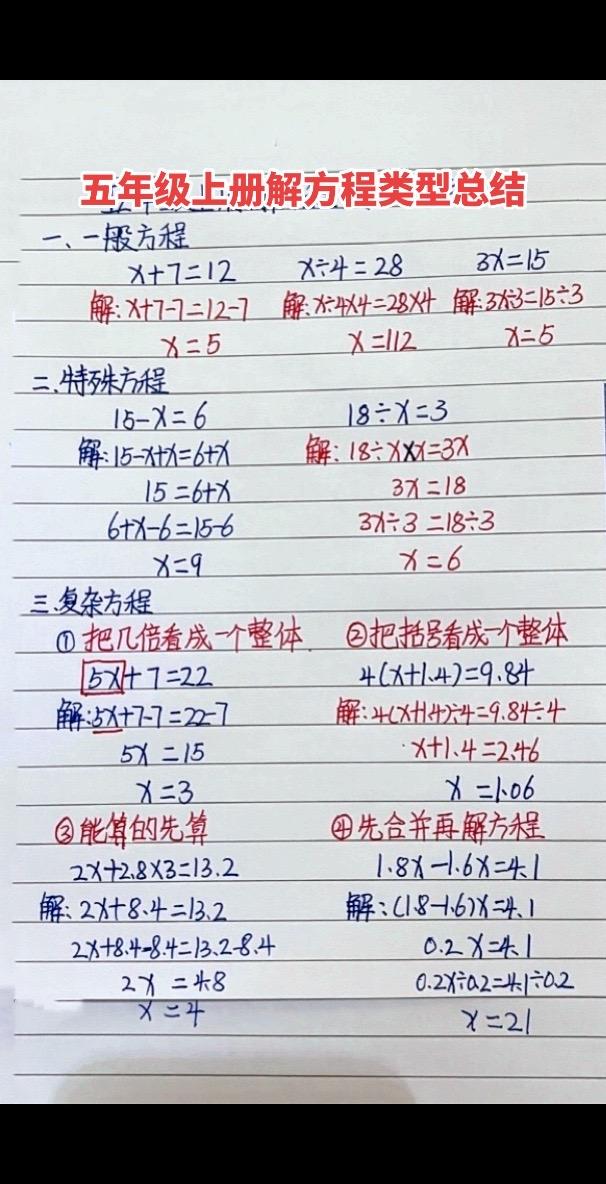 五年级上册解方程类型总结
一、一般方程
x+7=12 x÷4=28 3x=15
解:x+7-7=12-7 解:x÷4×4=28×4 解:3x÷3=15÷3
x=5 x=112 x=5
二、特殊方程
15-x=6 18÷x=3
解:15-x+x=6+x 解:18÷x×x=3x
15=6+x 3x=18
6+x-6=15-6 3x÷3=18÷3
x=9 x=6
三、复杂方程
①把几倍看成一个整体 ②把括号看成一个整体
5x+7=22 4(x+1.4)=9.84
解:5x+7-7=22-7 解:4(x+1.4)÷4=9.84÷4
5x=15 x+1.4=2.46
x=3 x=1.06
③能算的先算 ④先合并再解方程
2x+2.8×3=13.2 1.8x-1.6x=4.1
解:2x+8.4=13.2 解:(1.8-1.6)x=4.1
2x+8.4-8.4=13.2-8.4 0.2x=4.1
2x=4.8 0.2x÷0.2=4.1÷0.2
x=4 x=21